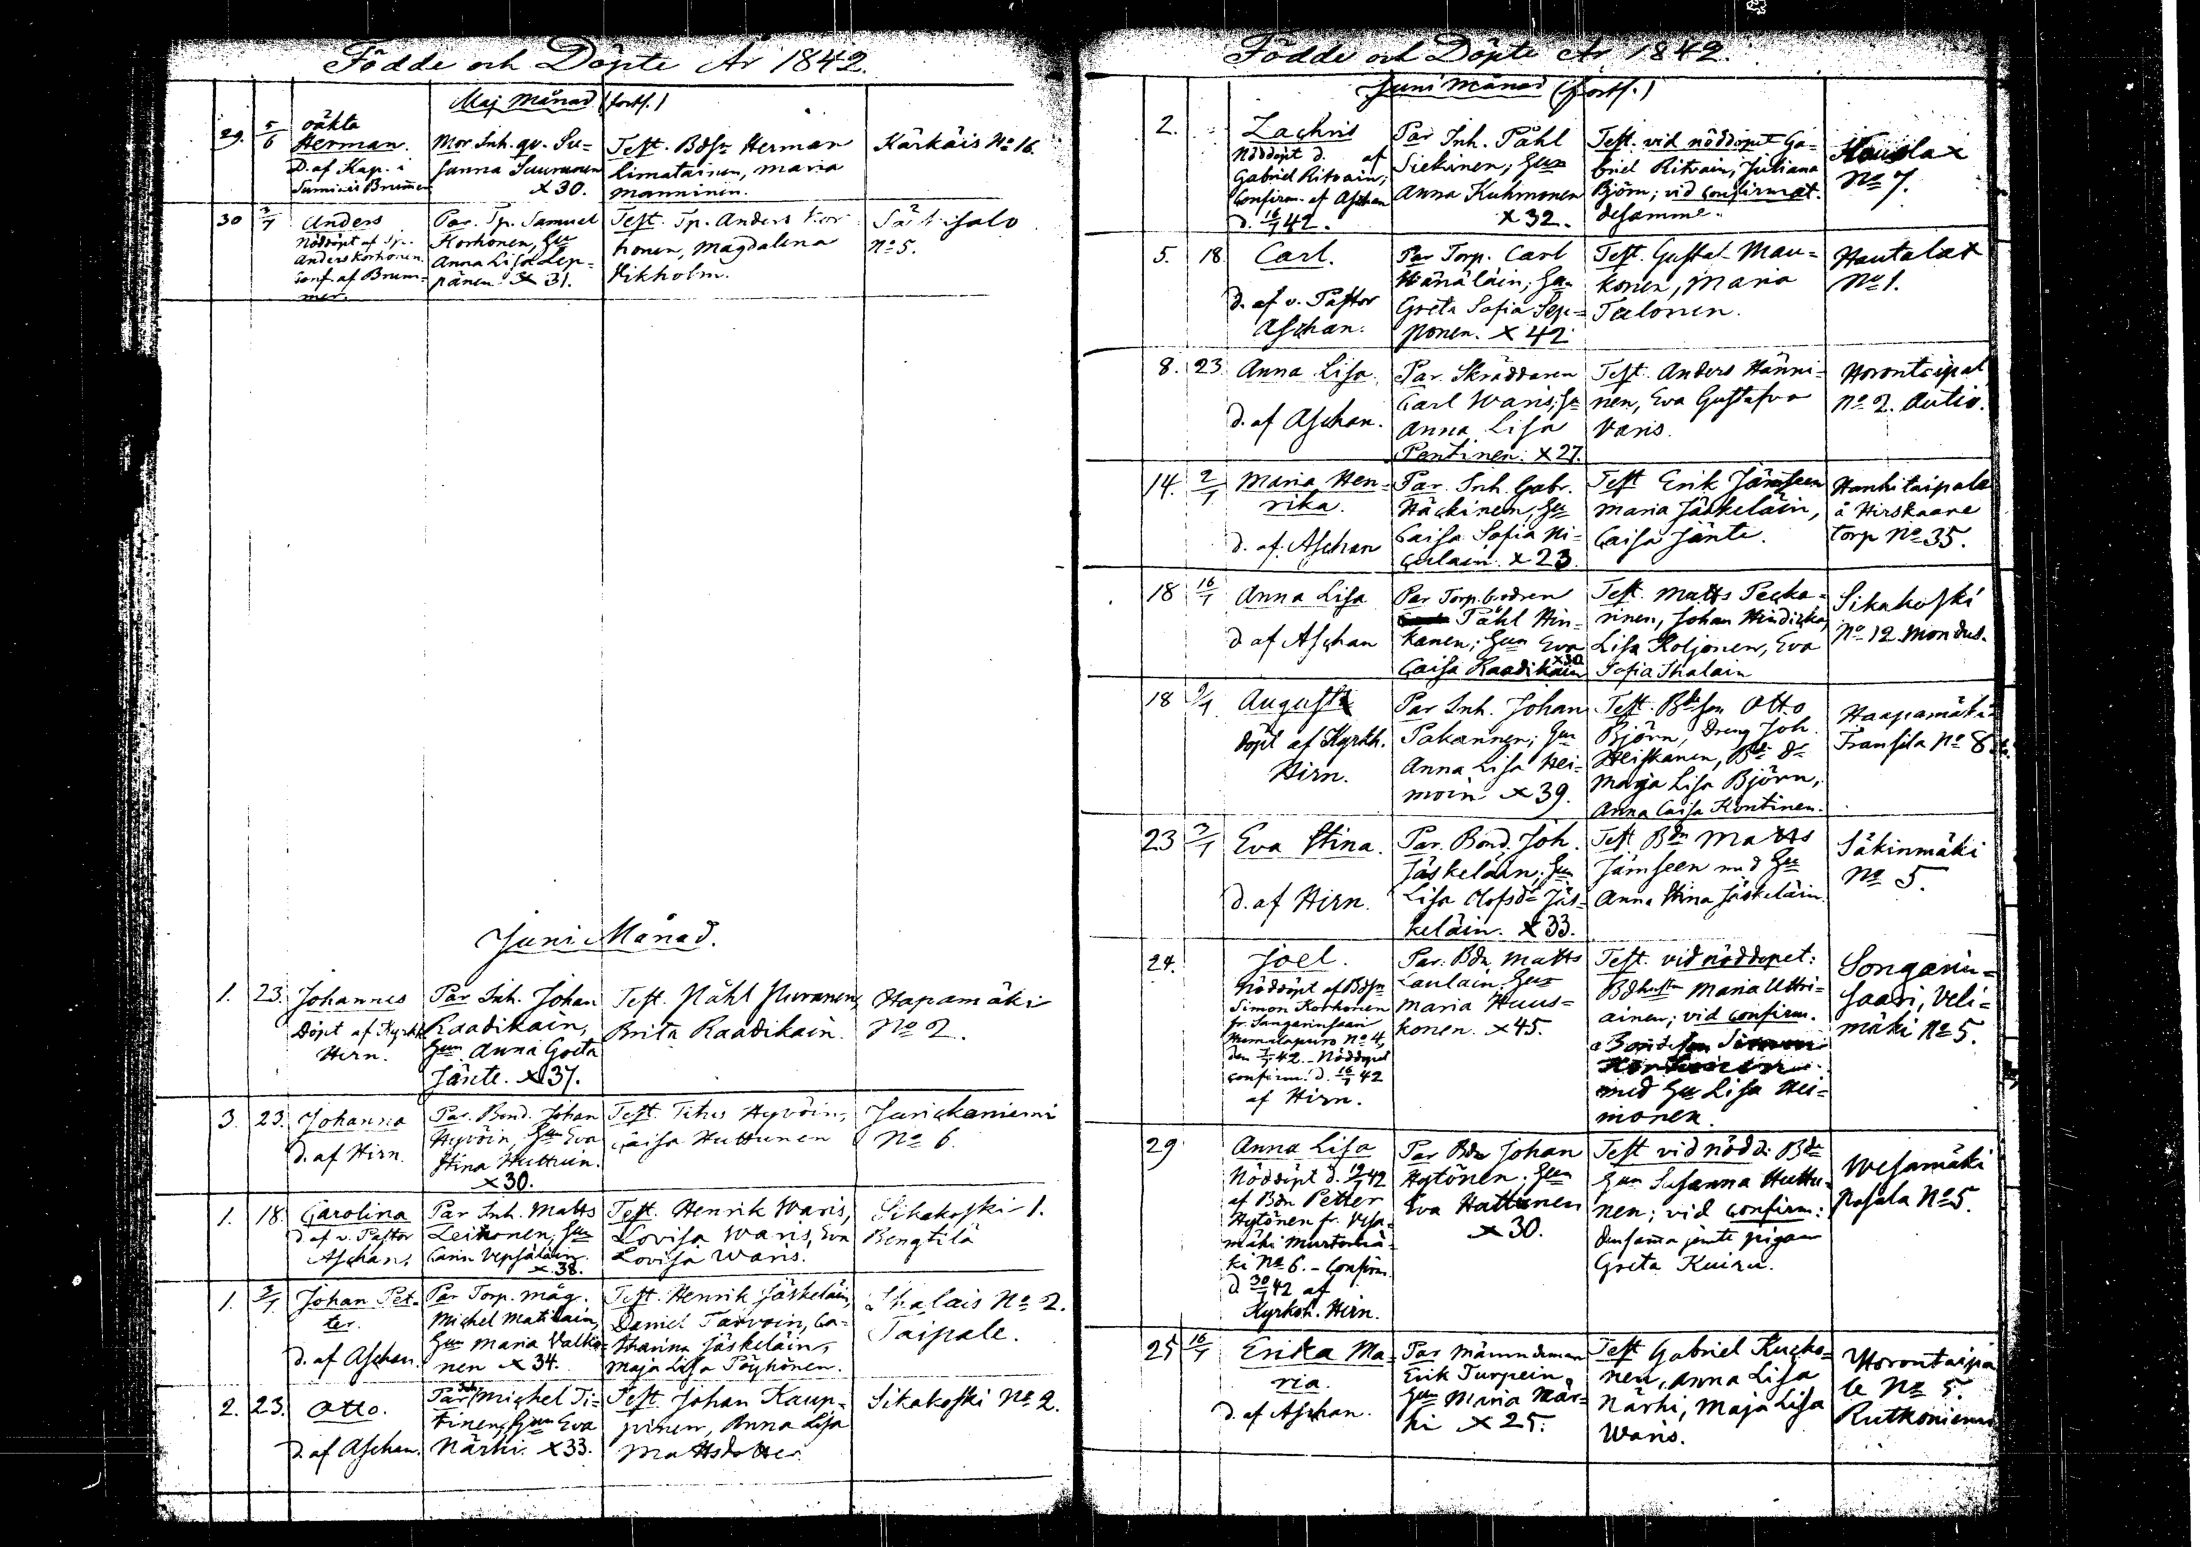 Födde och Döpte År 1842.
Maj Månad (forts.)
29. 5/6 oäkta
Herman.
D. af Kap. i
Sumiais Brummer
Mor Inh. qv. Su=
sanna Suuronen
x 30.
Test. Bdsn Herman
Limatainen, Maria
Manninen.
Kärkäis No 16.
30 3/7 Anders
Nöddöpt af Tp.
Anders Korhonen.
conf. af Brum=
mer.
Par. Tp. Samuel
Korhonen, Hu
Anna Lisa Lep=
pänen x 31.
Test. Tp. Anders Kor
honen, Magdalena
Hikholm.
No 5.
Juni Månad.
1. 23. Johannes
Döpt af Kyrkh.
Hirn.
Par Inh. Johan
Raadikain,
Hun Anna Greta
Jänte. x 37.
Test. Påhl Puranen,
Brita Raadikain.
Hapamäki
No 2.
3. 23. Johanna
d. af Hirn.
Par. Bond. Johan
Hyvöin, Hu Eva
Stina Huttuin.
x 30.
Test. Titus Hyvöin,
Caisa Huttunen
Junickaniemi
No 6.
1. 18. Carolina
d. af v. Pastor
Aschan.
Par Inh. Matts
Leikonen, Hu
Carin Vepsäläin.
x 38.
Test. Henrik Waris,
Lovisa Waris, Eva
Lovisa Waris.
Sikakoski 1.
Bengtilä
1. 3/7 Johan Pet=
ter.
d. af Aschan.
Par Torp. måg.
Michel Matilain,
Hun Maria Valko=
nen x 34.
Test. Henrik Jäskeläin,
Daniel Tarvoin, Ca=
tharina Jäskeläin,
Maja Lisa Pöyhönen.
Ihalais No 2.
Taipale.
2. 23. Otto.
d. af Aschan.
Par Inh. Michel Ti=
tinen, Hun Eva
Närhi. x 33.
Test. Johan Kaup=
pinen, Anna Lisa
Mattsdotter
Sikakoski No 2.
Födde och Döpte År 1842.
Juni Månad (forts.)
2. Zachris
Nöddöpt d. af
Gabriel Ritvain;
Confirm. af Aschan
d. 16/7 42.
Par Inh. Påhl
Siekinen; Hun
Anna Kuhmonen
x 32.
Test. vid nöddopet Ga=
briel Ritvain, Juliana
Björn; vid Confirmat.
desamme.
No 7.
5. 18 Carl.
d. af v. Pastor
Aschan.
Par Torp. Carl
Hänäläin; Hun
Greta Sofia Sep=
ponen. x 42
Test. Gustaf Mau=
konen, Maria
Talonen.
Hautalax
No 1.
8. 23 Anna Lisa
d. af Aschan.
Par. Skräddaren
Carl Waris; Hu
Anna Lisa
Pentinen. x 27.
Test. Anders Hänni=
nen, Eva Gustafva
Varis.
Horontaipal
No 2. Autio.
14. 2/7 Maria Hen=
rika.
d. af Aschan
Par. Inh. Gabr.
Häckinen; Hu
Caisa Sofia Ni=
culain x 23
Test Erik Jämseen
Maria Jäskeläin,
Caisa Jänte.
Hankitaipale
å Hirskaare
torp No 35.
18 16/7 Anna Lisa
d af Aschan
Par Torp. brodren
Påhl Hin=
kanen; Hun Eva
Caisa Raadikain
x 30
Test. Matts Pecka=
rinen, Johan Hindicka,
Lisa Koljonen, Eva
Sofia Ihalain
Sikakoski
No 12 Mondus.
18 9/7 August
döpt af Kyrkh.
Hirn.
Par Inh. Johan
Pakarinen; Hun
Anna Lisa Hei=
moin x 39.
Test. Bdeson Otto
Björn, Dreng Joh.
Heiskanen, Bde dr
Maja Lisa Björn,
Anna Caisa Kontinen.
Haapamäki
Fransila No 8
23 3/7 Eva Stina.
d. af Hirn.
Par. Bond. Joh.
Jäskeläin; Hun
Lisa Olofsdr Jäs=
keläin. x 33.
Test Bdn Matts
Jämseen med Hu
Anna Stina Jäskeläin.
Säkinmäki
No 5.
24. Joel.
Nöddöpt af Bdsn
Simon Korhonen
fr. Sangarinsaari
No 4,
den 1/7 42. Nöddopet
confirm. d. 16/7 42
af Hirn.
Par. Bdn Matts
Laulain. Hun
Maria Huus=
konen. x 45.
Test. vid nöddopet:
Bdhust. Maria Uttri=
ainen; vid confirm.
med Hu Lisa Hei=
monen.
Songarin=
saari, Veli=
mäki No 5.
29 Anna Lisa
Nöddöpt d. 19/7 42
af Bdn Petter
Hytönen fr. Vesa=
mäki Murtomä=
ki No 6. - Confirm.
d 30/7 42 af
Kyrkoh. Hirn.
Par Bdn Johan
Hytönen; Hun
Eva Hattunen
x 30.
Test vid nödd: Bde
Hun Susanna Huttu=
nen; vid confirm:
densamma jemte pigan
Greta Kuiru.
Wesamäki
Pasala No 5.
25 16/7 Erika Ma=
ria.
d. af Aschan.
Par
Erik Turpein
Hun Maria När=
hi x 25.
Test Gabriel Kucko=
nen, Anna Lisa
Närhi, Maja Lisa
Waris.
Horontaipa
le No 5.
Rutkoniemi